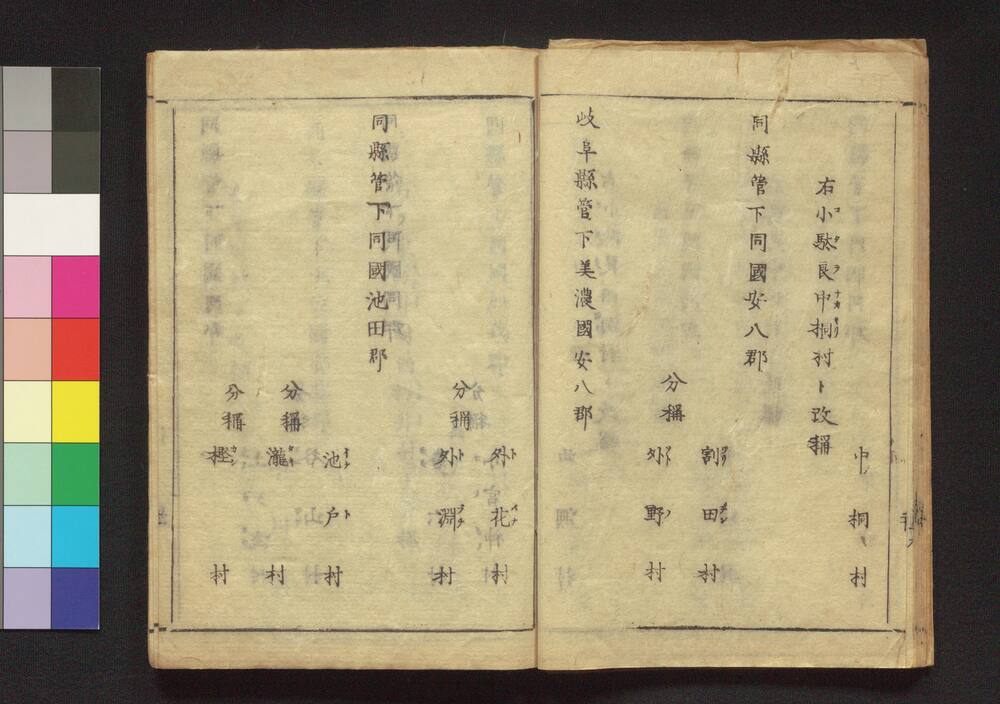 中桐村
右小駄良中桐村ト改稱
同縣管下同國安八郡
割田村
分稱
外野村
岐阜縣管下美濃國安八郡
外花村
分稱
外淵村
同縣管下同國池田郡
池戸村
分稱
瀧村
分稱
樫村